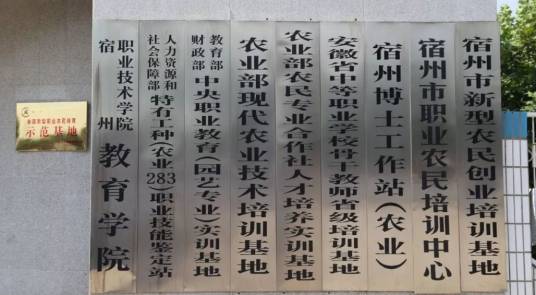 宿州市新型农民创业培训基地
宿州市职业农民培训中心
宿州博士工作站(农业)
安徽省中等职业学校骨干教师省级培训基地
农业部农民专业合作社人才培养实训基地
农业部现代农业技术培训基地
教育部
财政部
中央职业教育(园艺专业)实训基地
人力资源和
社会保障部
特有工种(农业283)职业技能鉴定站
宿州
职业技术学院
教育学院
示范基地